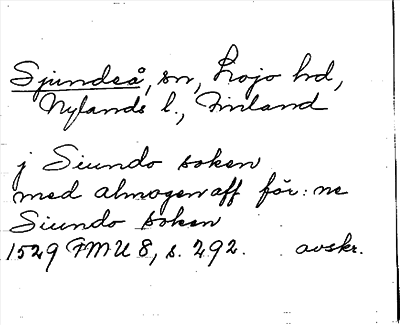 Sjundeå, sn, Lojo hd,
Nylands l., Finland
j Siundo soken
med almogen aff för:ne
Siundo soken
1529 FMU 8, s. 292. avskr.